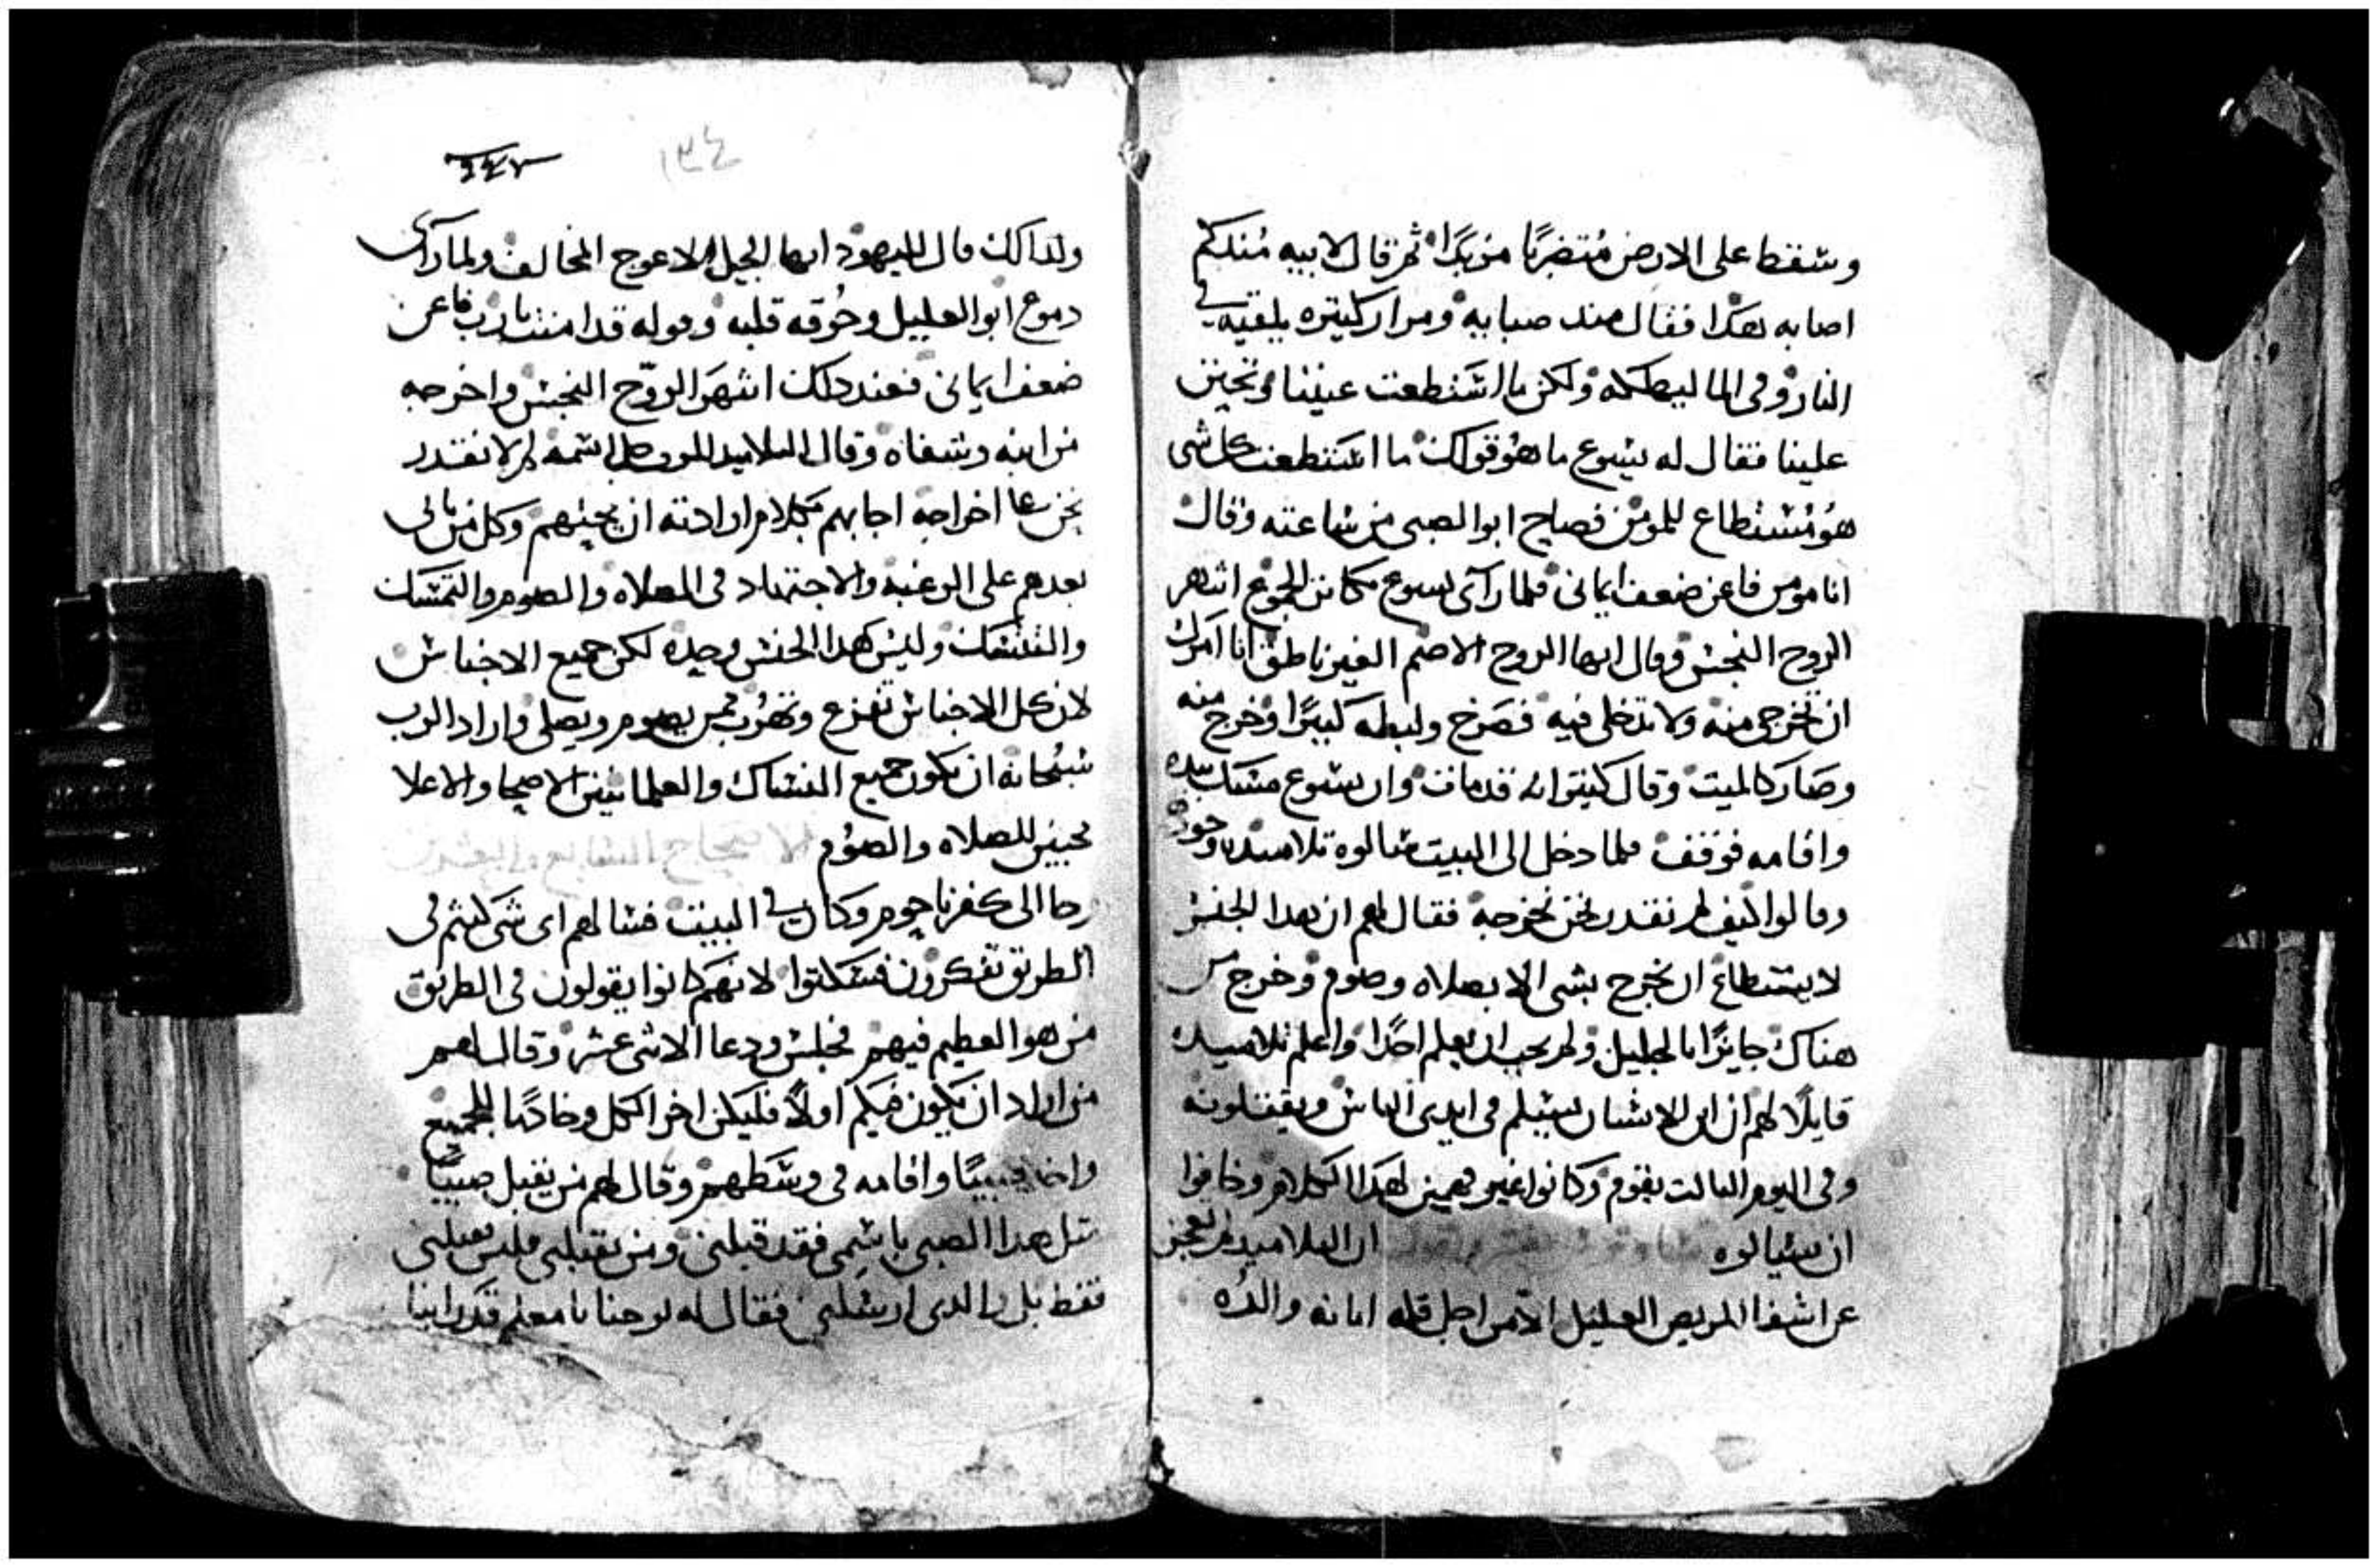 وسقط على الارض مضطربا مزبدا ثم قال لابيه منذكم
اصابه هكذا فقال منذ صبايه ومرار كتيره يلقيه في
النار وفي الما ليهلكه ولكن ما استطعت عيننا وتحنن
علينا فقال له يسوع ما هو قولك ما استطعت كل شي
هو مستطاع للمومن فصاح ابو الصبي من ساعته وقال
انا مومن فاعن ضعف ايماني فلما راى يسوع الجموع انتهر
الروح النجس وقال ايها الروح الاصم الغير ناطق انا امرك
ان تخرجي منه ولا تدخلي فيه فصرخ ولبطه كثيرا وخرج منه
وصار كالميت وقال كثيرا انه قد مات وان يسوع مسك بيده
واقامه فوقف فلما دخل الى البيت سالوه تلاميذه
وقالوا كيف لم نقدر نحن نخرجه فقال لهم ان هدا الجنس
لا يستطاع ان يخرج بشي الا بصلاه وصوم وخرج من
هناك جايزا بالجليل ولم يحب ان يعلم احدا واعلم تلاميذه
قايلا لهم ان ابن الانسان يسلم في ايدي الناس ويقتلونه
وفي اليوم التالت يقوم وكانوا غير فهمين لهدا الكلام وخافوا
ان يسالوه ان التلاميد لم تعجز
عن شفا المريض العليل الا من اجل قله امانه والده
٢٤٧
١٣٤
ولدالك قال لليهود ايها الجيل الاعوج المخالف ولما راى
دموع ابو العليل وحرقه قلبه وقوله قد امنت يارب فاعن
ضعف ايماني فعند دلك انتهر الروح النجس واخرجه
من ابنه وشفاه وقال التلاميد لم لا نقدر
نحن اخراجه اجابهم بكلام ارادته ان وكل من ياتي
بعدهم على الرغبه والاجتهاد في الصلاه والصوم والتمسك
والنسك وليس هدا الجنس وحده لكن جميع الاجناس
لان كل الاجناس تفزع وتهرب ممن يصوم ويصلي واراد الرب
سبحانه ان يكون جميع النساك والعلمانيين الاصحا والاعلا
محبين للصلاه والصوم الاصحاح السابع والعشرون
وجا الى كفرناحوم وكان في البيت فسالهم اي شي كنتم في
الطريق تفكرون فسكتوا لانهم كانوا يقولون في الطريق
من هو العظيم فيهم فجلس ودعا الاثني عشر وقال لهم
من اراد ان يكون فيكم اولا فليكن اخر الكل وخادما للجميع
واخد صبيا واقامه في وسطهم وقال لهم من يقبل صبيا
متل هدا الصبي باسمي فقد قبلني ومن يقبلني فليس يقبلني
فقط بل والدي ارسلني فقال له يوحنا يا معلم قد راينا